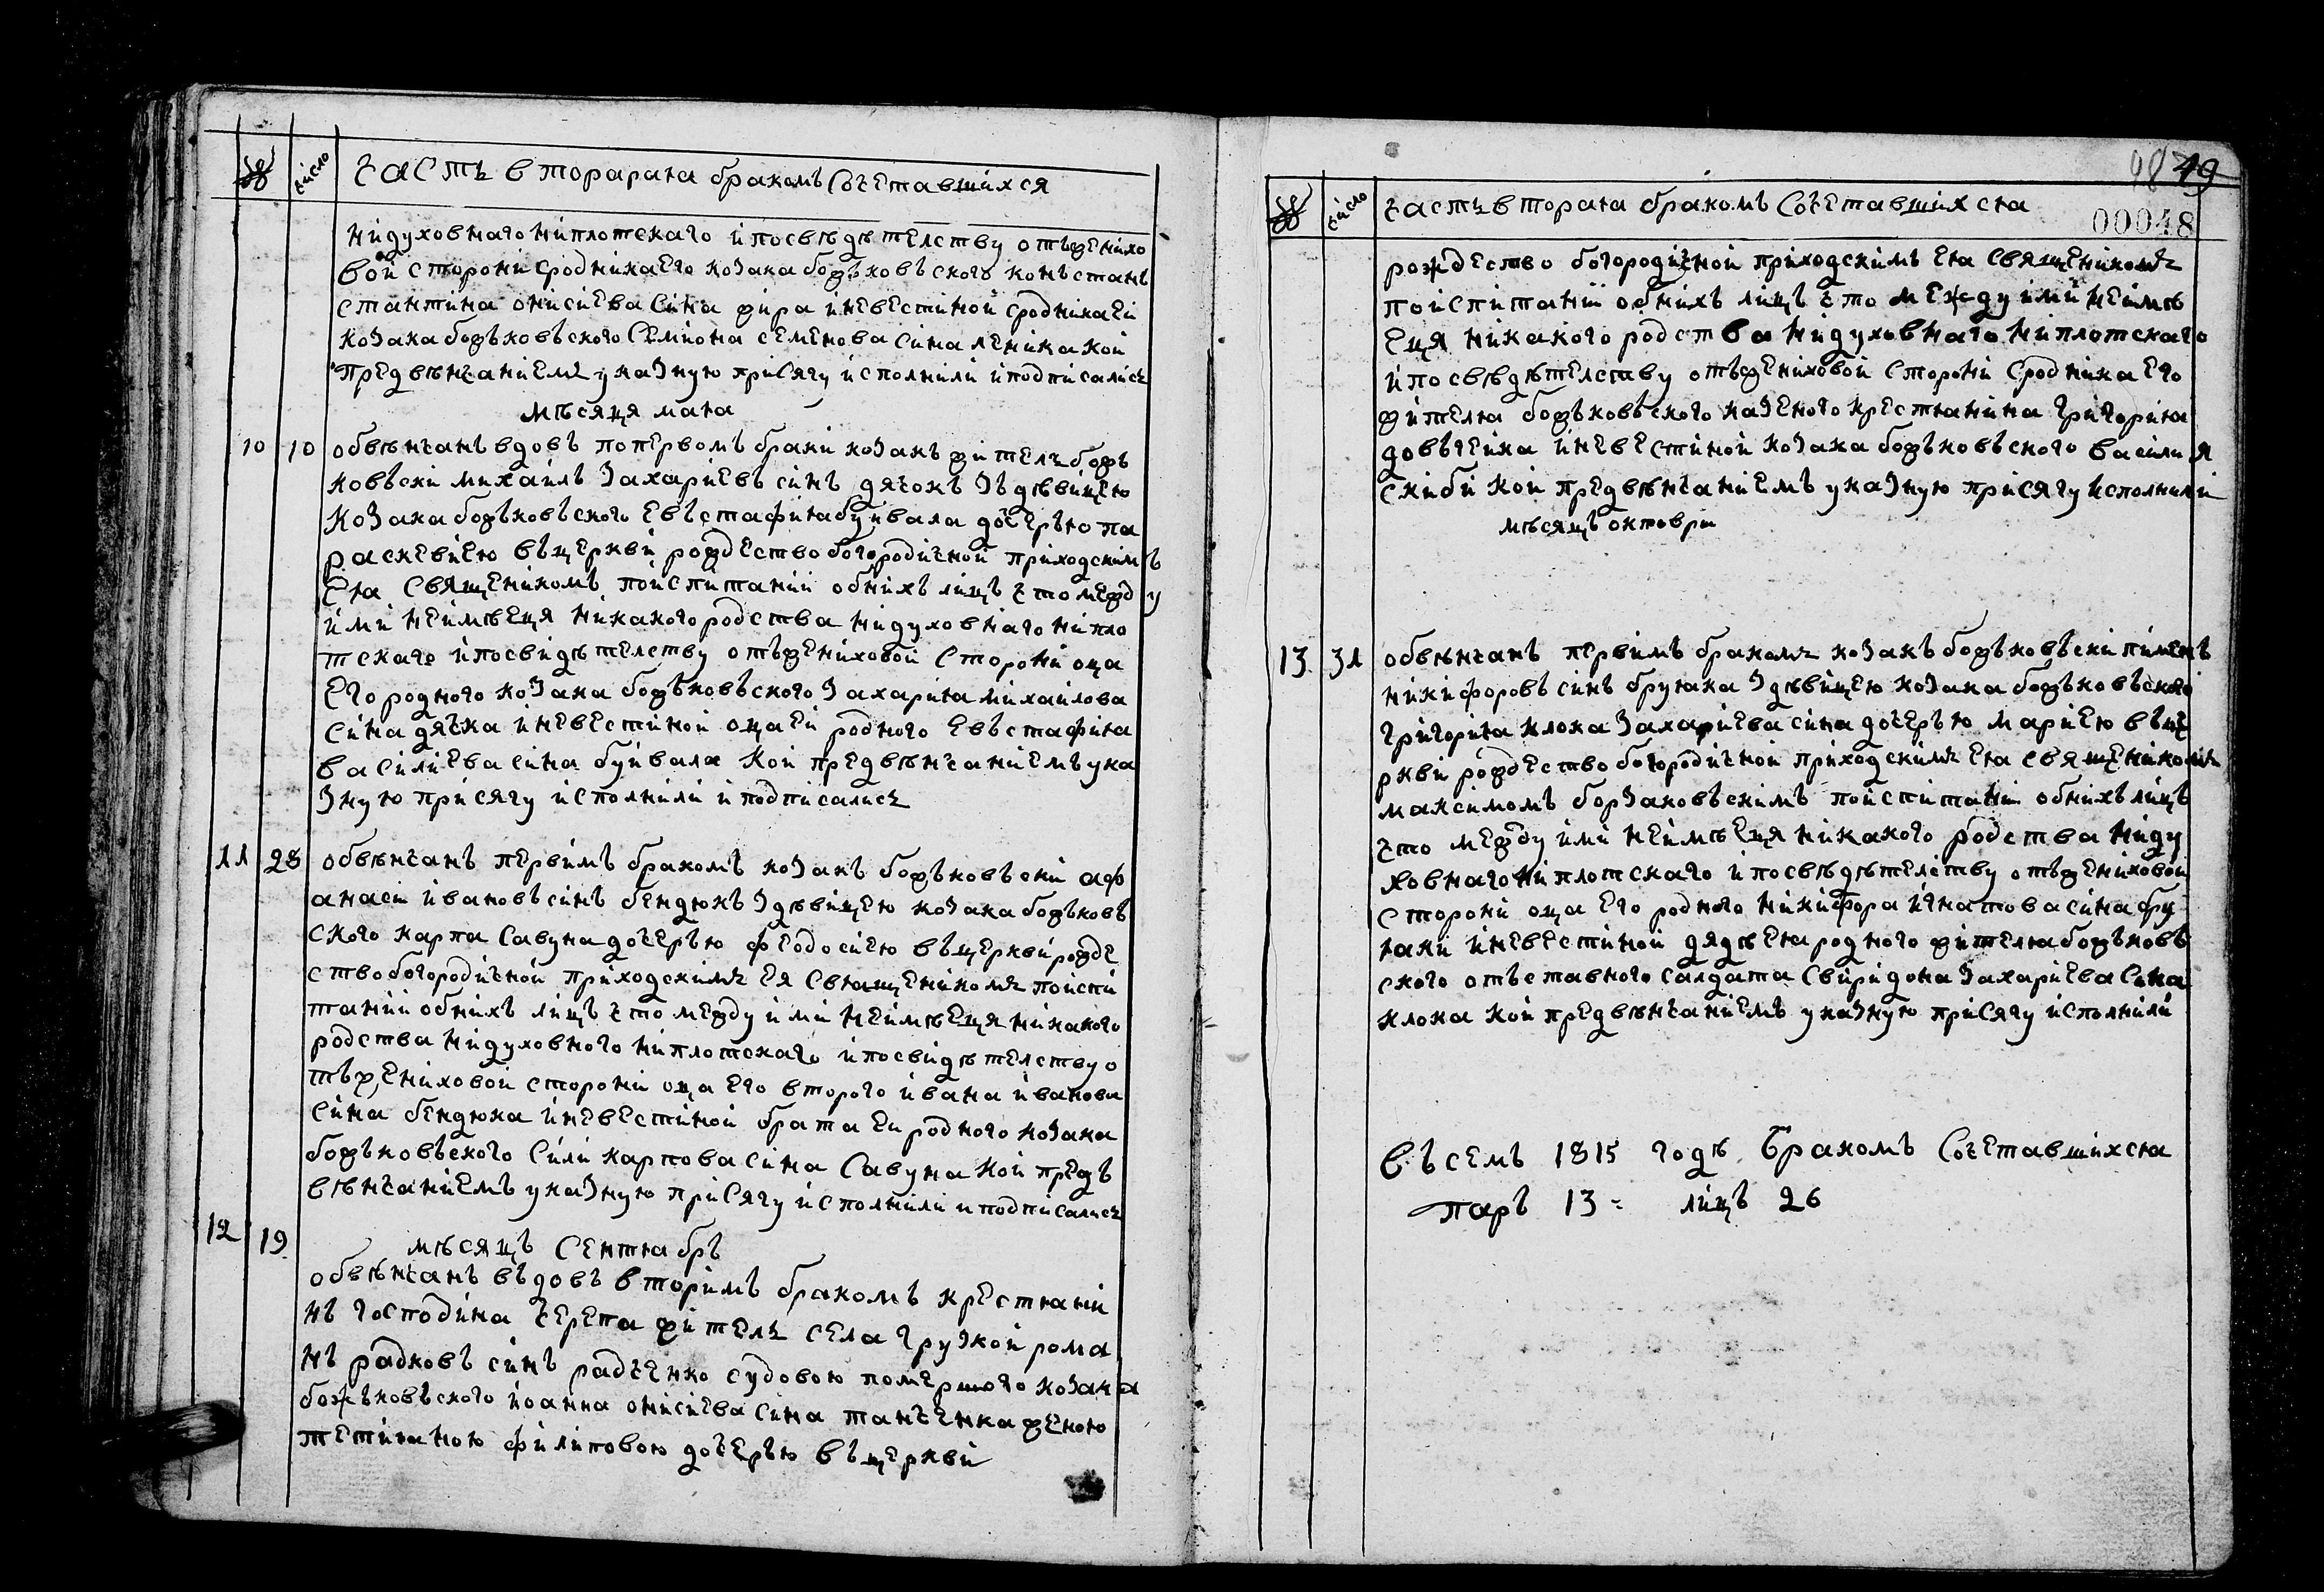 число
часть вторарата браком сочетавшихся
нидуховнаго ниплотскаго ипосвѣдѣтелству отъженихо
вой сторони сродникаего козака божъковъского конъстанъ
стантина онисиева сина жира иневестиной сродникаеи
козака божъковъского семиона семенова сина леника кои
предвѣнчаниемъ указную присягу исполнили иподписалисъ
мѣсяця мата
10 10 обвѣнчанъ вдовъ попервомъ браки козакъ жителъ божъ
ковъски михаилъ захариевъ синъ дячокъ зъдѣвицею
козака божъковъского евъстафита буивала дочерѣю па
раскевиею въцеркви рождество богородичной приходскимъ
ета священикомъ поиспитании обнихъ лицъ что между
ими неимѣеця никакого родства нидуховнаго нипло
тскаго ипосвидѣтелству отъжениховой сторони оца
его родного козака божъковъского захарита михаилова
сина дячка иневестиной оцаеи родного евъстафита
василиева сина буивала кои предвѣнчаниемъ ука
зную присягу исполнили иподписалисъ
11 28 обвѣнчанъ первимъ бракомъ козакъ божъковъски аф
анаси ивановъ синъ бендюкъ здѣвицею козака божъковъ
ского карпа савуна дочерѣю феодосиею въцеркви рожде
ствобогородичной приходскимъ ея свтащеникомъ поиспи
тании обнихъ лицъ что между ими неимѣеця никакого
родства нидуховного ниплотскаго ипосвидѣтелству о
тъжениховой сторони оца его второго ивана иванова
сина бендюка иневестиной брата еи родного козака
божъковъского сили карпова сина савуна кои предъ
вѣнчаниемъ указную присягу исполнили иподписалисъ
12 19
мѣсяцъ сентнабръ
обвѣнчанъ въдовъ вторимъ бракомъ крестнани
нъ господина черепа жителъ села грузкой рома
нъ радковъ синъ радченко судовою помершого козака
божъковъского иоанна онисиева сина танченка женою
тетитаною филиповою дочерѣю въцеркви
49
00048
число
частъвтората бракомъ сочетавшихста
рождество богородичной приходскимъ ета священикомъ
поиспитании обнихъ лицъ что между ими неимѣ
еця никакого родства нидуховнаго ниплотскаго
ипосвѣдѣтелству отъжениховой сторони сродника его
жителта божъковъского казеного крестнанина григорита
довъгеика иневестиной козака божъковъского василия
скиби кои предвѣнчаниемъ указную присягу исполнили
мѣсяцъ октоври
13 31 обвѣнчанъ первимъ бракомъ козакъ божъковъски пименъ
никифоровъ синъ брутака здѣвицею козака божъковъского
григорита клока захариева сина дочерѣю мариею въце
ркви рождество богородичной приходскимъ ета священикомъ
максимомъ борзаковъскимъ поиспитани обнихъ лицъ
что между ими неимѣеця никакого родства ниду
ховнаго ниплотскаго ипосвѣдѣтелству отъжениховой
сторони оца его родного никифора игнатова сина бру
таки иневестиной дядѣ ета родного жителта божъковъ
ского отъставного салдата свиридона захариева сина
клока кои предвѣнчаниемъ указную присягу исполнили
въсемъ 1815 годѣ бракомъ сочетавшихста
паръ 13 лицъ 26